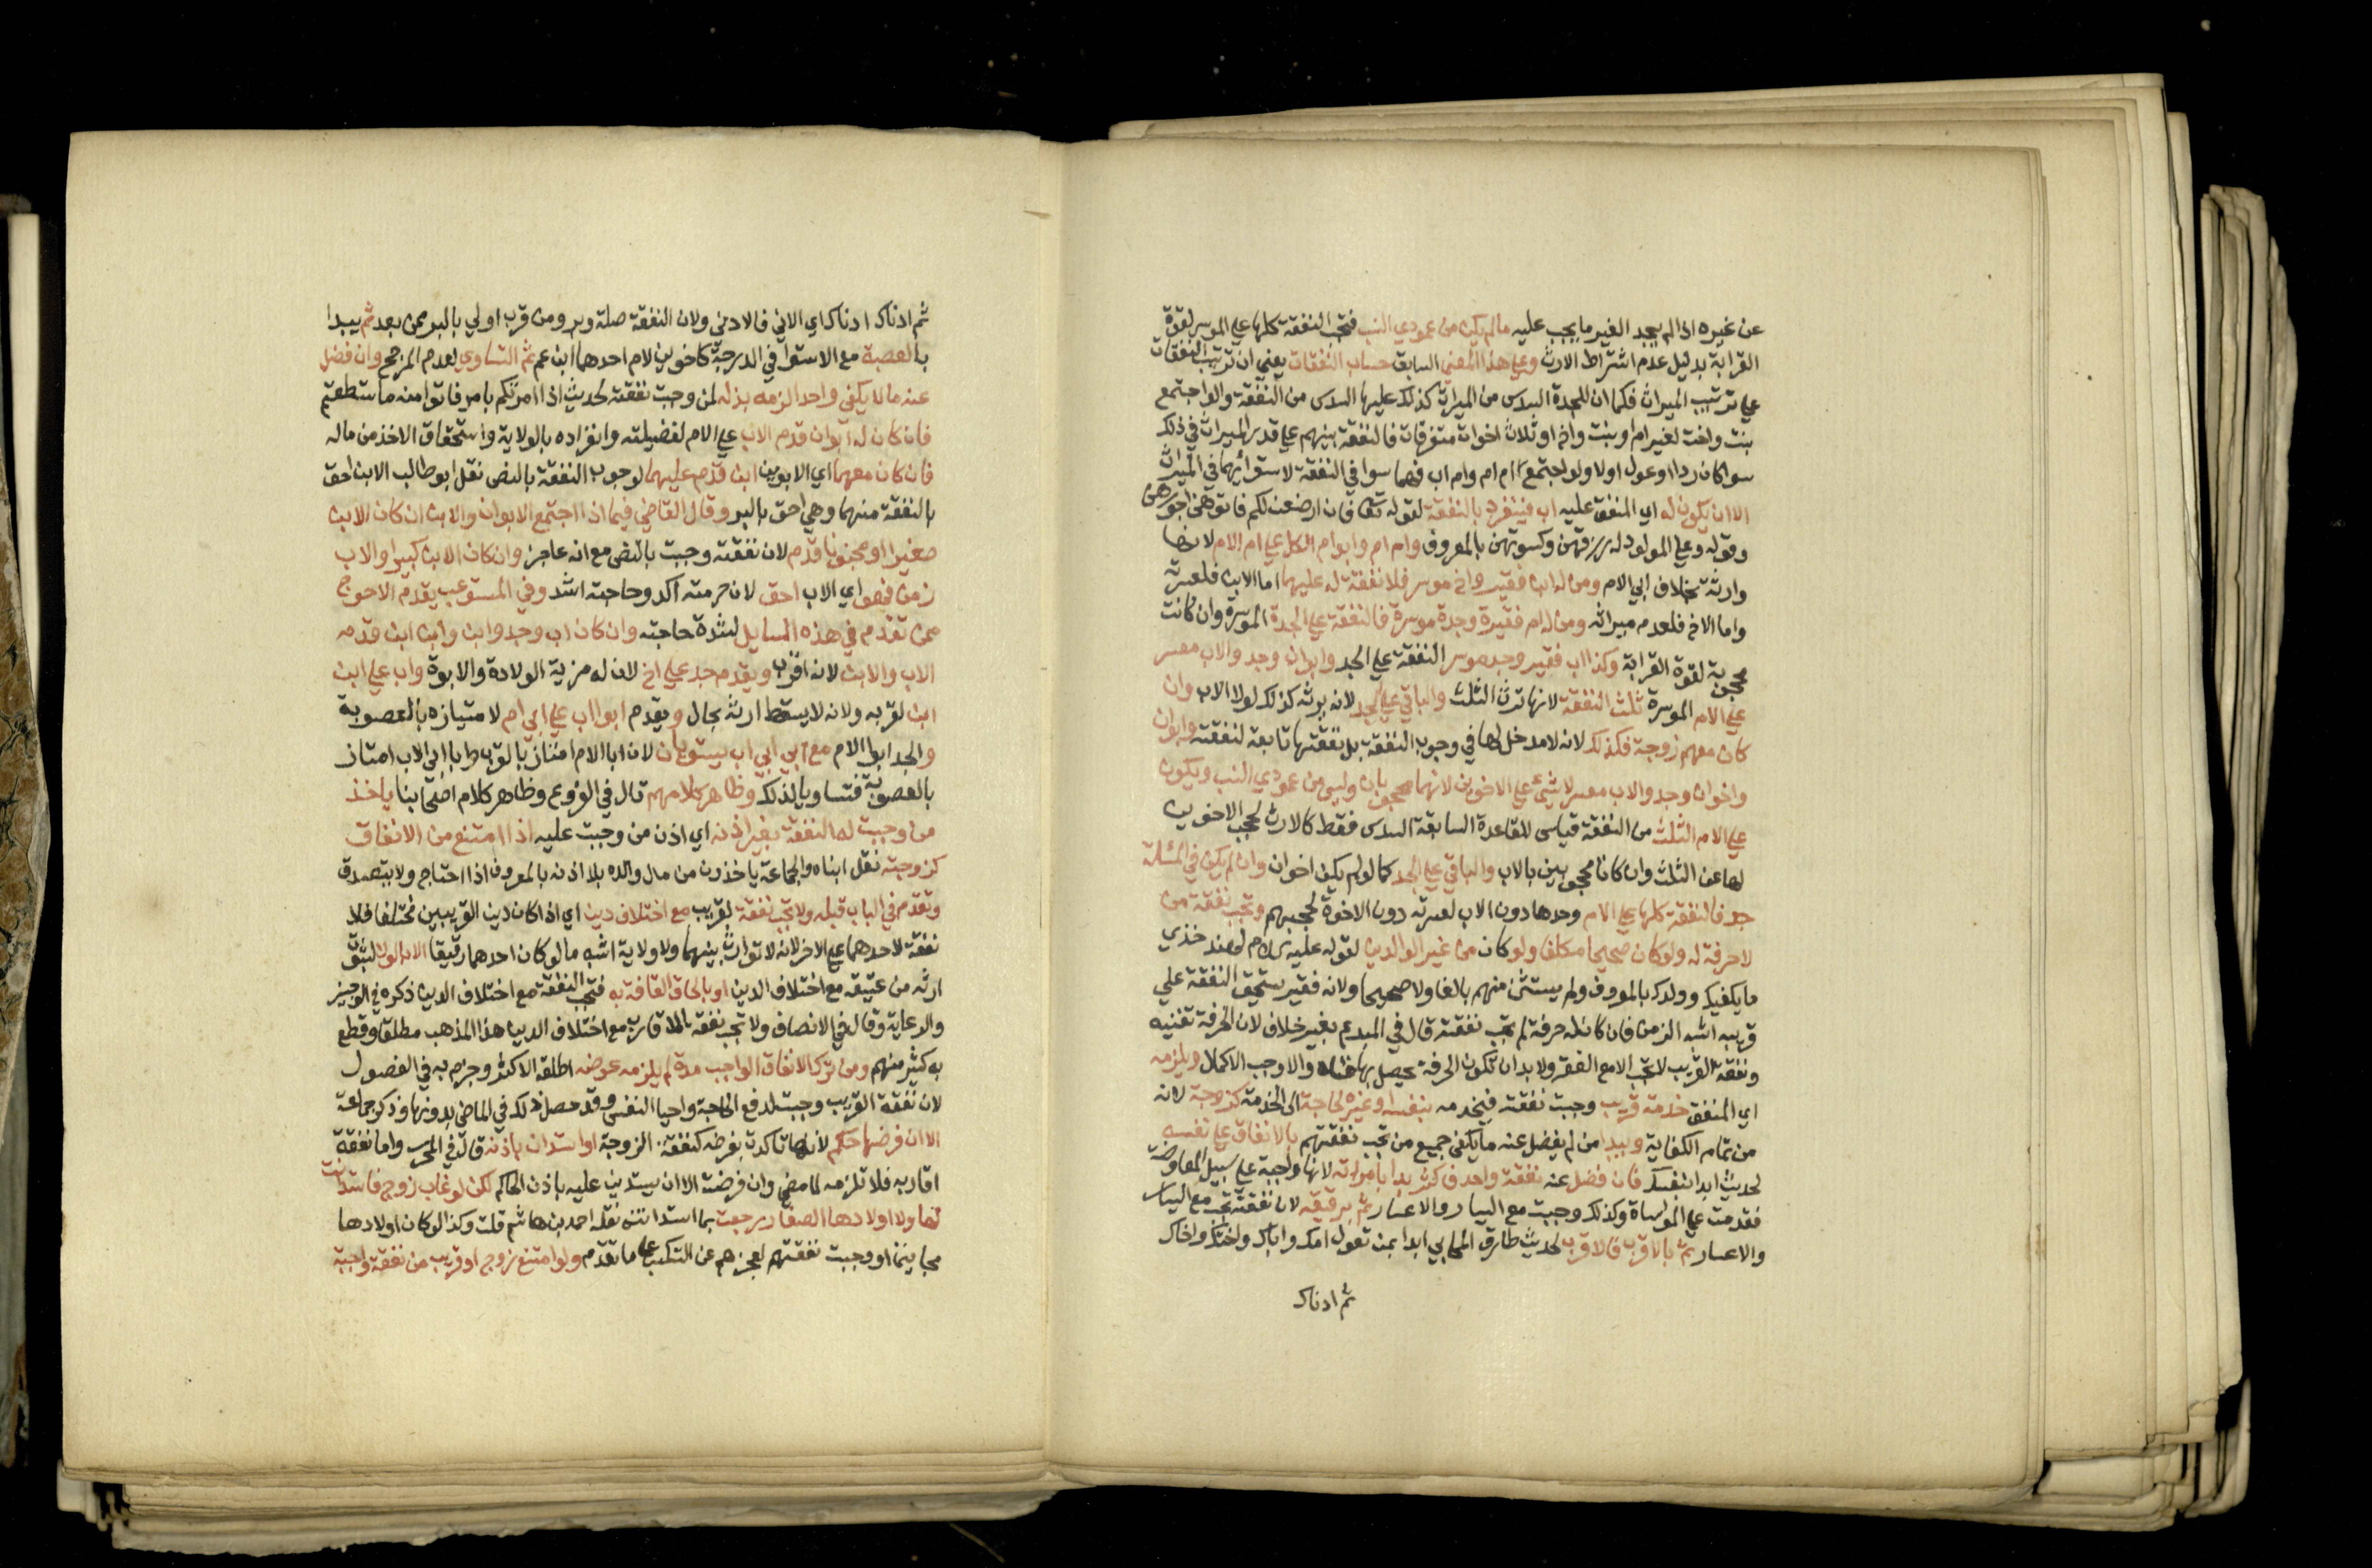 عن غيره اذا لم يجد الغير ما يجب عليه مالم يكن من عمودي النسب فتجب النفقة كلها علي الموسر لقوة
القرابة بدليل عدم اشتراط الارث وعلي هذا المعني السابق حساب النفقات يعني ان ترتيب النفقات
علي ترتيب الميراث فكما ان للجدة السدس من الميراث كذلك عليها السدس من النفقة ولو اجتمع
بنت واخت لغير ام او بنت واخ او ثلاث اخوات متفرقات فالنفقة بينهم علي قدر الميراث في ذلك
سوا كان ردا او عول اولا ولو اجتمع ام ام وام اب فهما سوا في النفقة لاستوائهما في الميراث
الا ان يكون له اي المنفق عليه اب فينفرد بالنفقة لقوله تعا فان ارضعن لكم فاتوهن اجورهن
وقوله وعلي المولود له رزقهن وكسوتهن بالمعروف وام ام وابو ام الكل علي ام الام لانها
وارثة بخلاف ابي الام ومن له ابن فقير واخ موسر فلا نفقة له عليهما اما الابن فلعسرته
واما الاخ فلعدم ميراثه ومن له ام فقيرة وجدة موسرة فالنفقة علي الجدة الموسرة وان كانت
محجوبة لقوة القرابة وكذا اب فقير وجد موسر النفقة علي الجد وابوان وجد والاب معسر
علي الام الموسرة ثلث النفقة لانها ترث الثلث والباقي علي الجد لانه يرثه كذلك لولا الاب وان
كان معهم زوجة فكذلك لانه لا مدخل لها في وجوب النفقة بل نفقتها تابعة لنفقته وابوان
واخوان وجد والاب معسر لا شئ علي الاخوين لانهما محجوبان وليس من عمودي النسب ويكون
علي الام الثلث من النفقة قياسى للقاعدة السابقة السدس فقط كالارث لحجب الاخوين
لها عن الثلث وان كانا محجوبين بالاب والباقي علي الجد كما لو لم يكن اخوان وان لم يكن في المسئلة
جد فالنفقة كلها علي الام وحدها دون الاب لعسرته دون الاخوة لحجبهم وتجب نفقة من
لا حرفة له ولو كان صحيحا مكلفا ولو كان من غير الوالدين لقوله عليه السلام لهند خذي
ما يكفيك وولدك بالمعروف ولم يستثن منهم بالغا ولا صحيحا ولانه فقير يستحق النفقة علي
قريبه اشبه الزمن فان كان له حرفة لم تجب نفقته قال في المبدع بغير خلاف لان الحرفة تغنيه
ونفقة القريب لا تجب الا مع الفقر ولا بد ان تكون الحرفة يحصل بها غناه والا وجب الاكمال ويلزمه
اي المنفق خدمة قريب وجبت نفقته فيخدمه بنفسه او غيره لحاجة الى الخدمة كزوجة لانه
من تمام الكفاية ويبدا من لم يفضل عنه ما يكفي جميع من تجب نفقتهم بالانفاق علي نفسه
لحديث ابدا بنفسك فان فضل عنه نفقة واحد فاكثر بدا بامراته لانها واجبة علي سبيل المعاوضة
فقدمت علي المواساة وكذلك وجبت مع اليسار والاعسار ثم برقيقه لان نفقته تجب مع اليسار
والاعسار ثم بالاقرب فالاقرب لحديث طارق المحاربي ابدا بمن تعول امك واباك واختك واخاك
ثم ادناك
ثم ادناك ادناك اي الادني فالادني ولان النفقة صلة وبر ومن قرب اولي بالبر ممن بعد ثم يبدا
بالعصبة مع الاستوا في الدرجة كاخوين لام احدهما ابن عم ثم التساوي لعدم المرجح وان فضل
عنه مالا يكفي واحدا لزمه بذله لمن وجبت نفقته لحديث اذا امرتكم بامر فاتوا منه ما استطعتم
فان كان له ابوان قدم الاب علي الام لفضيلته وانفراده بالولاية واستحقاق الاخذ من ماله
فان كان معهما اي الابوين ابن قدم عليهما لوجوب النفقة بالنص نقل ابو طالب الابن احق
بالنفقة منهما وهي احق بالبر وقال القاضي فيما اذا اجتمع الابوان والابن ان كان الابن
صغيرا او مجنونا قدم لان نفقته وجبت بالنص مع انه عاجز وان كان الابن كبيرا والاب
زمن فهو اي الاب احق لان حرمته اكد وحاجته اشد وفي المستوعب يقدم الاحوج
ممن تقدم في هذه المسايل لشدة حاجته وان كان اب وجد وابن وابن ابن قدم
الاب والابن لانه اقرب ويقدم جد علي اخ لان له مزية الولادة والابوة واب علي ابن
ابن لقربه ولانه لا يسقط ارثه بحال ويقدم ابو اب علي ابي ام لامتيازه بالعصوبة
والجد ابو الام مع ابي ابي اب يستويان لان ابا الام امتاز بالقرب وابا ابي الاب امتاز
بالعصوبة فتساويا لذلك وظاهر كلامهم قال في الفروع وظاهر كلام اصحابنا ياخذ
من وجبت له النفقة بغير اذنه اي اذن من وجبت عليه اذا امتنع من الانفاق
كزوجته نقل ابناه والجماعة ياخذ من مال والده بلا اذنه بالمعروف اذا احتاج ولا يتصدق
وتقدم في الباب قبله ولا تجب نفقة لقريب مع اختلاف دين اي اذا كان دين القريبين مختلفا فلا
نفقة لاحدهما علي الاخر لانه لا توارث بينهما ولا ولاية اشبه مالو كان احدهما رقيقا الا بالولا لثبوت
ارثه من عتيقه مع اختلاف الدين او بالحاق القافة به فتجب النفقة مع اختلاف الدين ذكره في الوجيز
والرعاية وقال في الانصاف ولا تجب نفقة الاقارب مع اختلاف الدين هذا المذهب مطلقا وقطع
به كثير منهم ومن ترك الانفاق الواجب مدة لم يلزمه عوضه اطلقه الاكثر وجزم به في الفصول
لان نفقة القريب وجبت لدفع الحاجة واحيا النفس وقد حصل ذلك في الماضي بدونها وذكر جماعة
الا ان فرضها حاكم لانها تاكدت بفرضه كنفقة الزوجة او استدان باذنه قال في المحرر واما نفقة
اقاربه فلا تلزمه لما مضي وان فرضت الا ان يستدين عليه باذن الحاكم لكن لو غاب زوج فاستدانت
لها ولاولادها الصغار رجعت بما استدانته نقله احمد بن هاشم قلت وكذا لو كان اولادها
مجانين او وجبت نفقتهم لعجزهم عن التكسب علي ما تقدم ولو امتنع زوج او قريب من نفقة واجبة